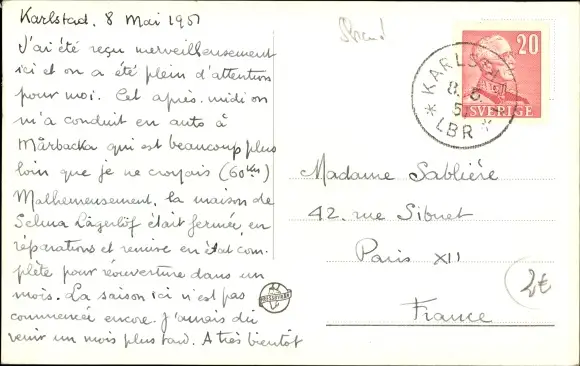 Karlstad, 8 Mai 1951
J'ai été reçu merveilleusement
ici et on a été plein d'attentions
pour moi. Cet après-midi on
m'a conduit en auto à
Mårbacka qui est beaucoup plus
loin que je ne croyais (60 Km)
Malheureusement, la maison de
Selma Lägerlöf était fermée, en
réparations et remise en état com-
plète pour réouverture dans un
mois. La saison ici n'est pas
commencée encore. J'aurais dû
venir un mois plus tard. A très bientôt
20
SVERIGE
8. 5.
5
LBR
Madame Sablière
42, rue Sibuet
Paris XII
France
2€